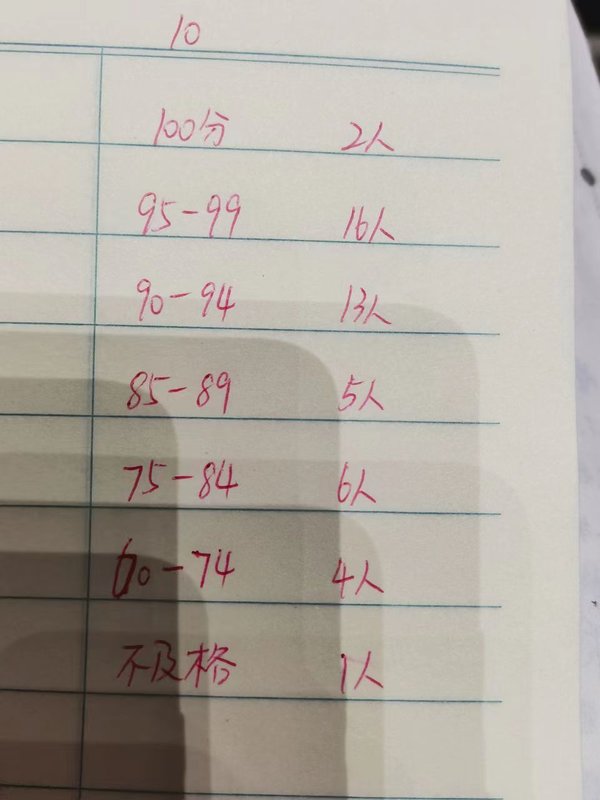 10
100分 2人
95-99 16人
90-94 13人
85-89 5人
75-84 6人
60-74 4人
不及格 1人